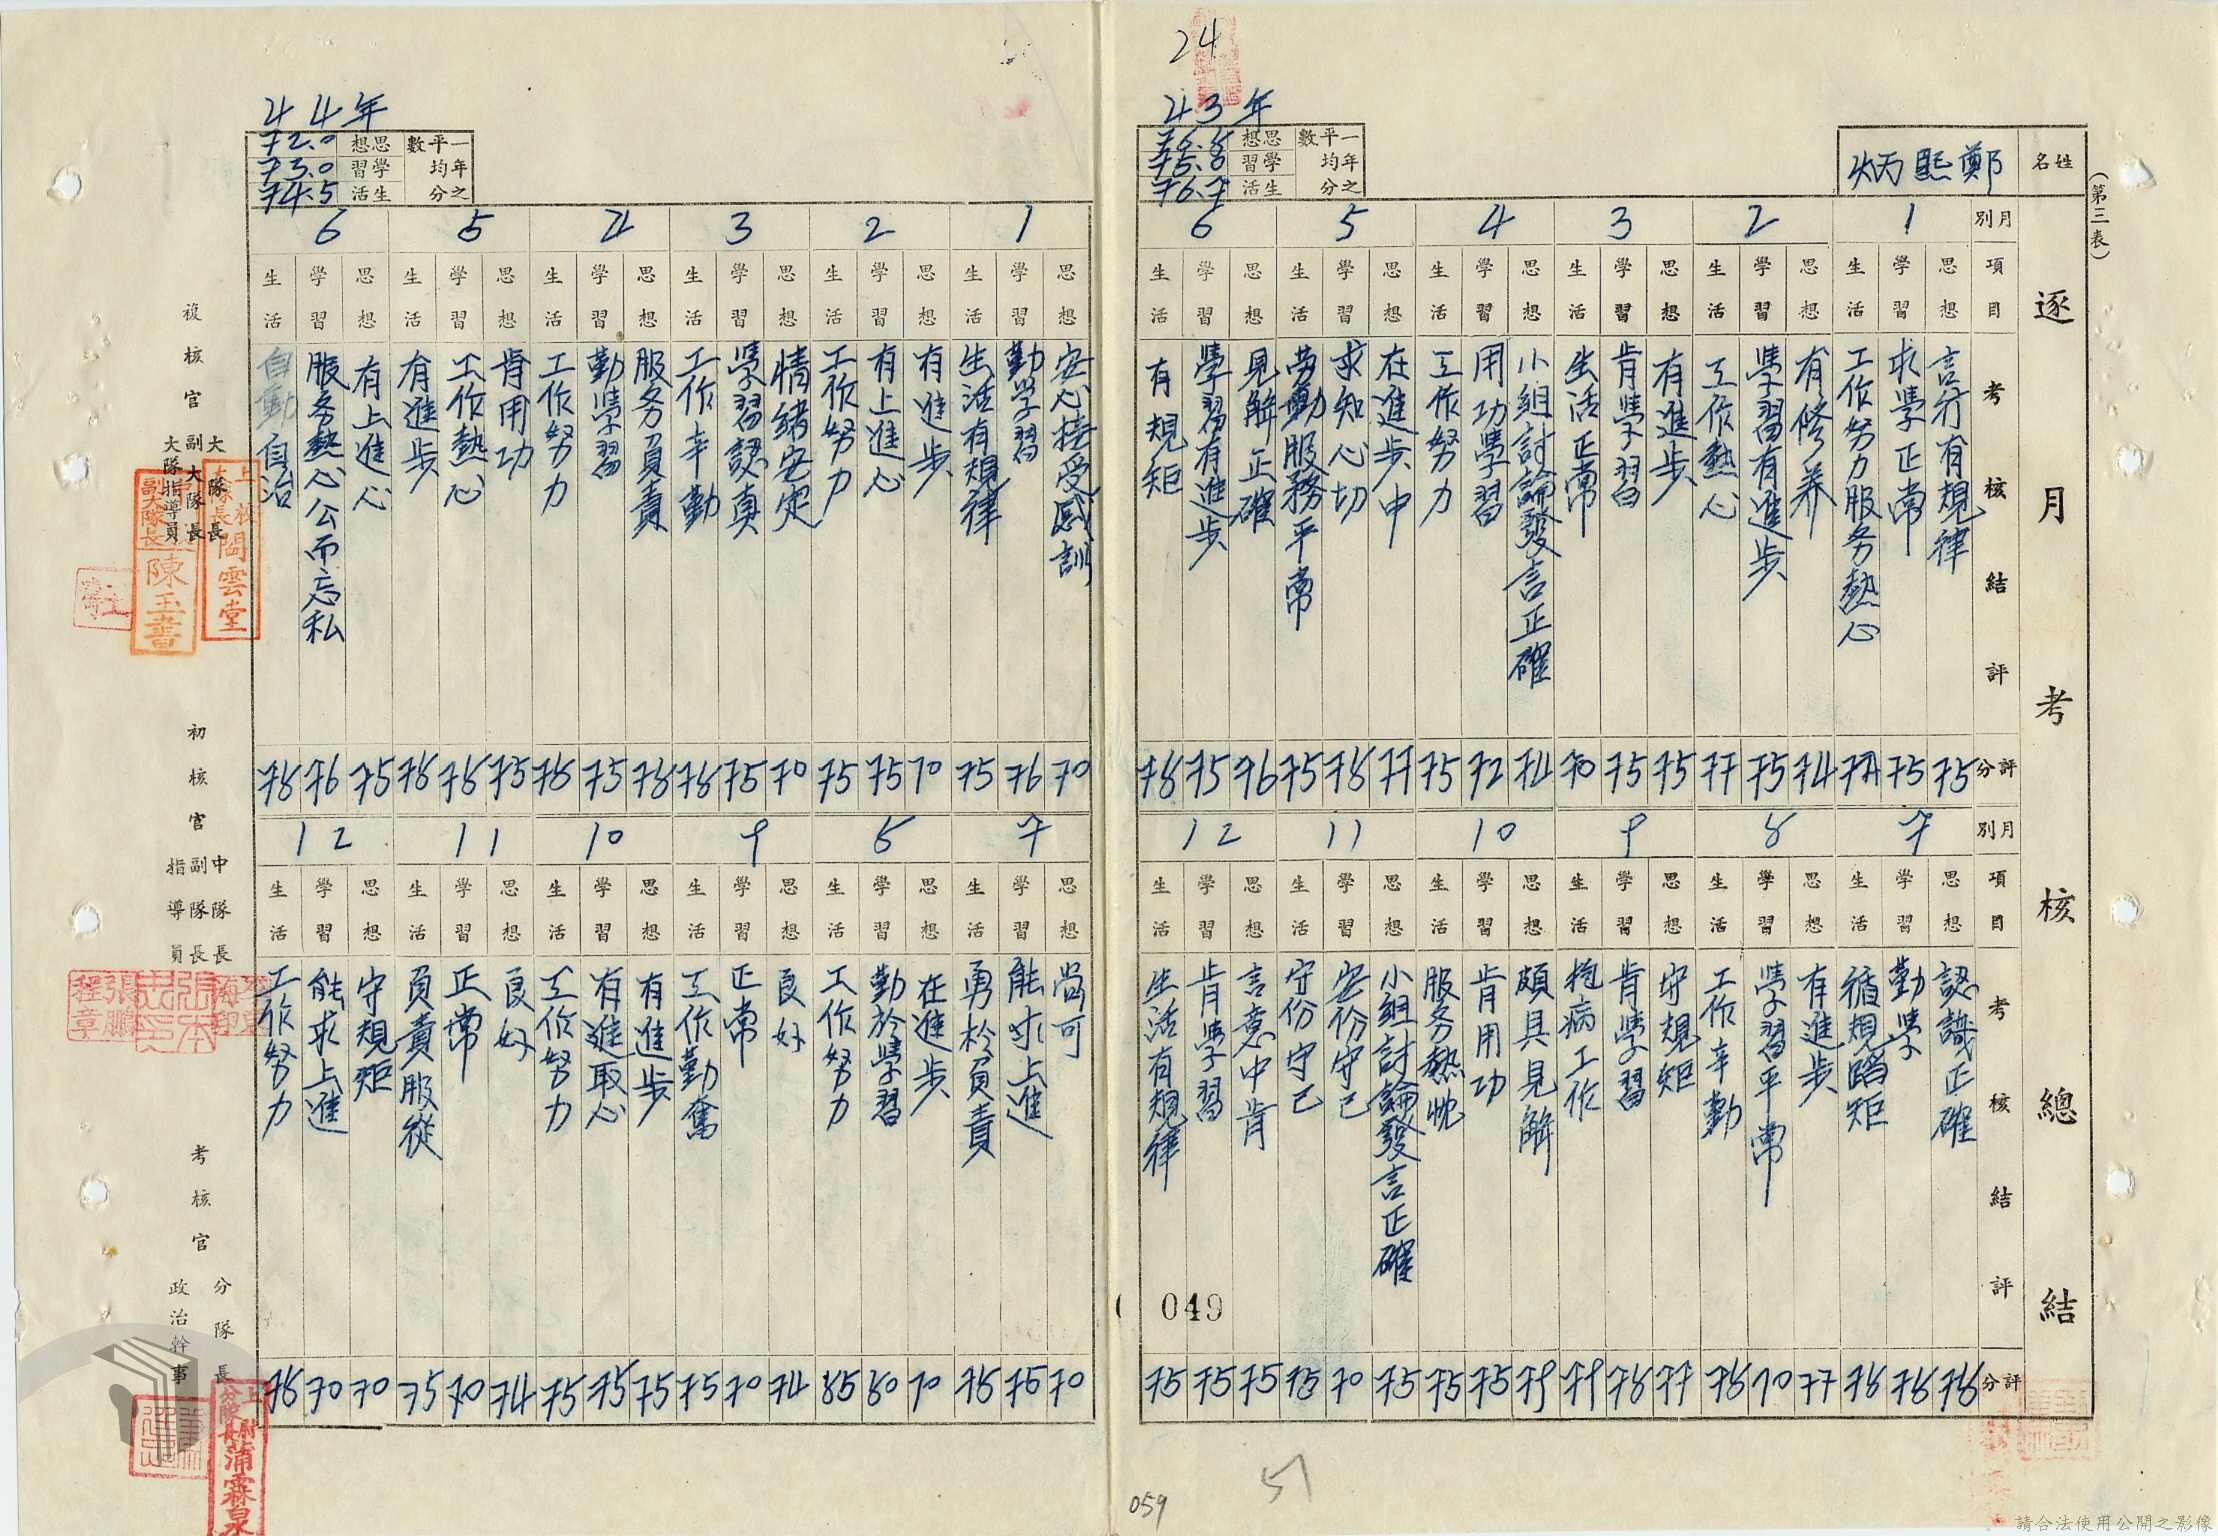 24
(第三表)
逐月考核總結
姓名
鄭熙炳
43年
一年之平均分數
思想 76.5
學習 75.0
生活 76.7
月別
項目
考核結評
評分
1
思想 言行有規律 75
學習 求學正常 75
生活 工作努力服务熱心
2
思想 有修养 74
學習 學習有進步 75
生活 工作熱心 77
3
思想 有進步 75
學習 肯學習 75
生活 生活正常 70
4
思想 小組討論發言正確 74
學習 用功學習 72
生活 工作努力 75
5
思想 在進步中 77
學習 求知心切 78
生活 劳動服務平常 75
6
思想 見解正確 76
學習 學習有進步 75
生活 有規矩 78
月別
項目
考核結評
評分
7
思想 認識正確 78
學習 勤學 78
生活 循規蹈矩 78
8
思想 有進步 77
學習 學習平常 70
生活 工作辛勤 78
9
思想 守規矩 77
學習 肯學習 78
生活 抱病工作 79
10
思想 頗具見解 79
學習 肯用功 75
生活 服务熱忱 75
11
思想 小組討論發言正確 75
學習 安份守己 70
生活 守份守己 75
12
思想 言意中肯 75
學習 肯學習 75
生活 生活有規律 75
049
44年
一年之平均分數
思想 72.0
學習 73.0
生活 74.5
1
思想 安心接受感訓 70
學習 勤学習 76
生活 生活有規律 75
2
思想 有進步 70
學習 有上進心 75
生活 工作努力 75
3
思想 情緒安定 70
學習 學習認真 75
生活 工作辛勤 78
4
思想 服务負責 78
學習 勤學習 75
生活 工作努力 78
5
思想 肯用功 75
學習 工作熱心 78
生活 有進步 78
6
思想 有上進心 75
學習 服务熱心公而忘私 76
生活 自動自治 78
7
思想 尚可 70
學習 能求上進 75
生活 勇於負責 78
8
思想 在進步 70
學習 勤於學習 80
生活 工作努力 85
9
思想 良好 74
學習 正常 70
生活 工作勤奮 75
10
思想 有進步 75
學習 有進取心 75
生活 工作努力 75
11
思想 良好 74
學習 正常 70
生活 負責服從 75
12
思想 守規矩 70
學習 能求上進 70
生活 工作努力 78
複核官
大隊長
副大隊長
大隊指導員
上校大隊長閻雲堂
副大隊長陳玉書
初核官
中隊長
副隊長
指導員
張鵬程章
考核官
分隊長
政治幹事
蒲霖泉
57
059
請合法使用公開之影像